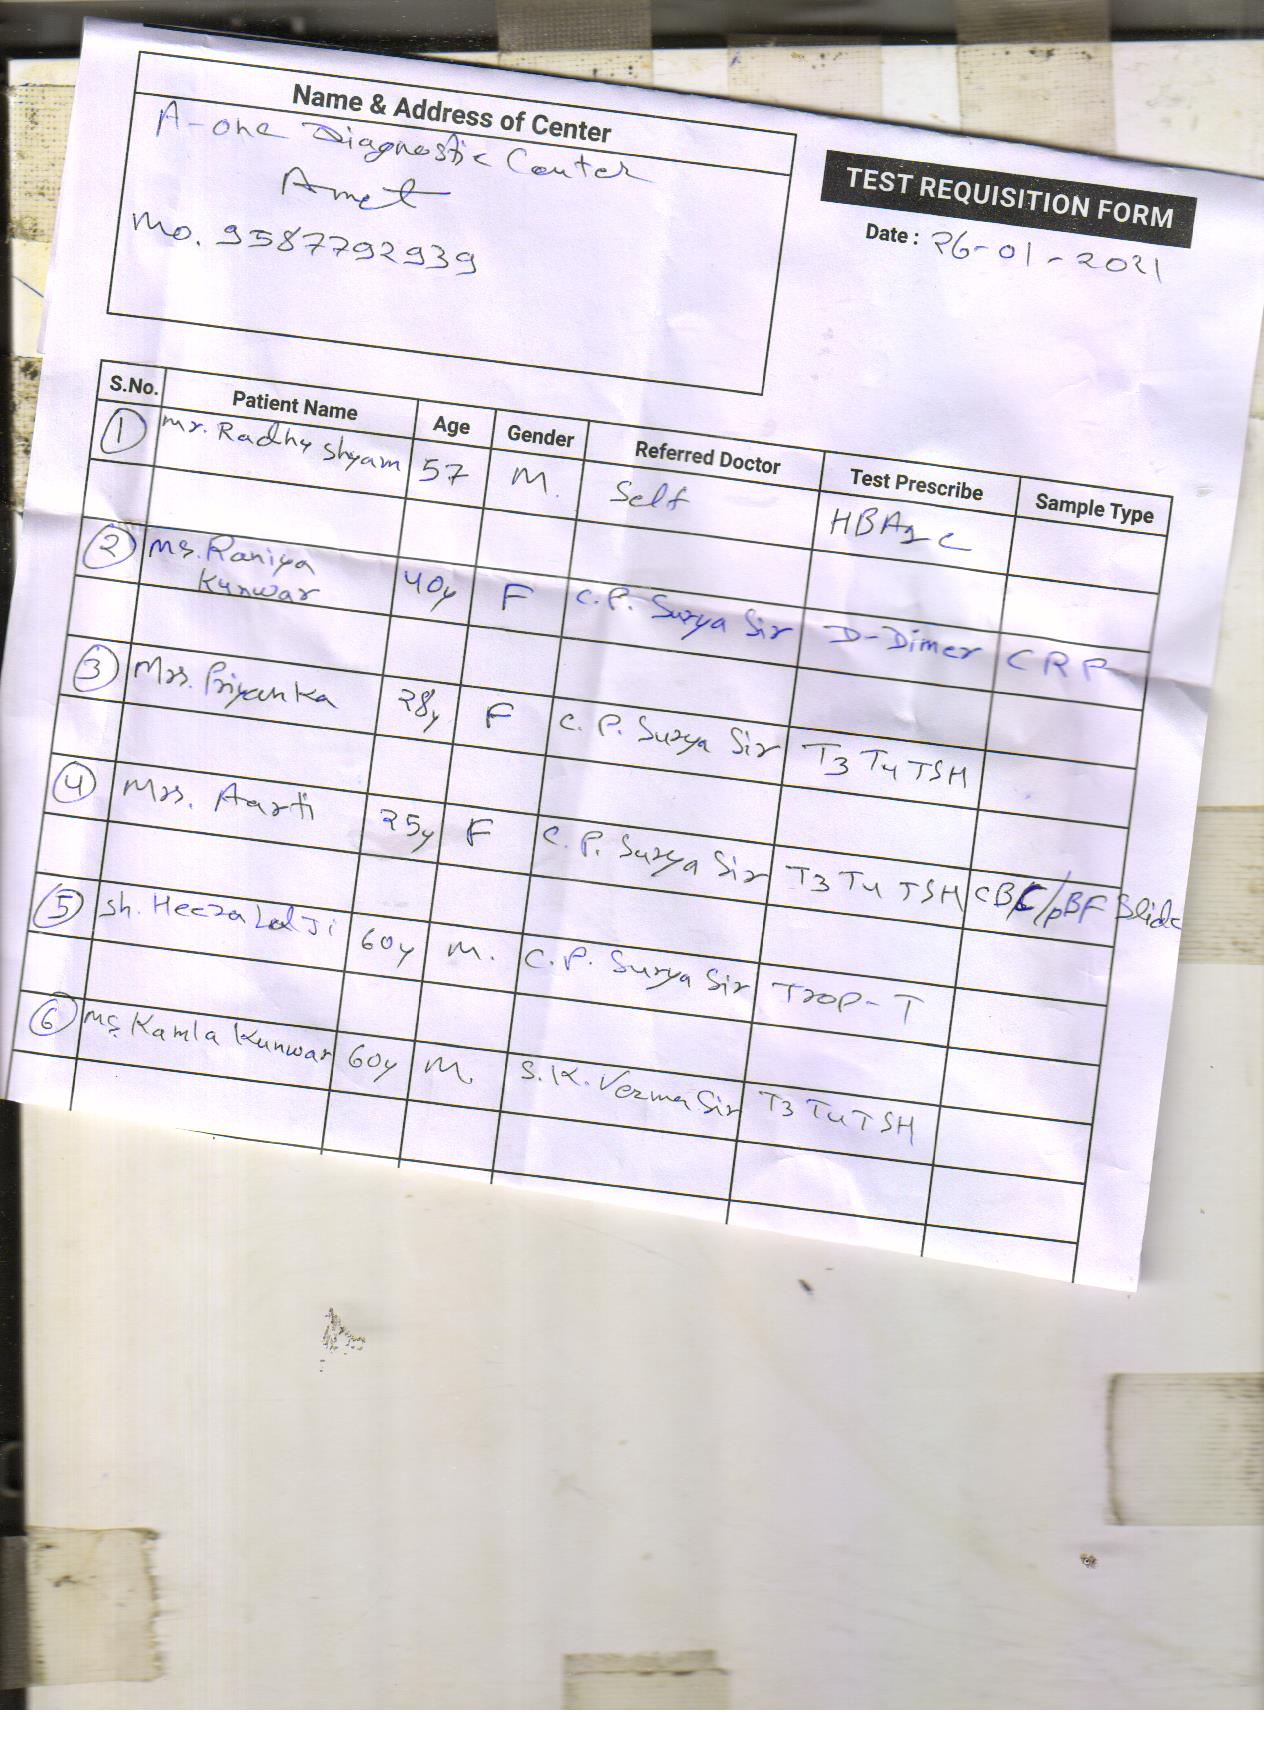 Name & Address of Center
A-one Diagnostic Center
Amet
Mo. 9587792939
TEST REQUISITION FORM
Date : 26-01-2021
S.No. Patient Name Age Gender Referred Doctor Test Prescribe Sample Type
1 Mr. Radhy Shyam 57 M. Self HBA1c
2 Ms. Raniya Kunwar 40y F C.P. Surya Sir D-Dimer CRP
3 Mrs. Priyanka 28y F C.P. Surya Sir T3 T4 TSH
4 Mrs. Aarti 25y F C.P. Surya Sir T3 T4 TSH CBC/PBF Slide
5 Sh. Heera Lal Ji 60y M. C.P. Surya Sir Trop-T
6 Ms. Kamla Kunwar 60y M. S.K. Verma Sir T3 T4 TSH